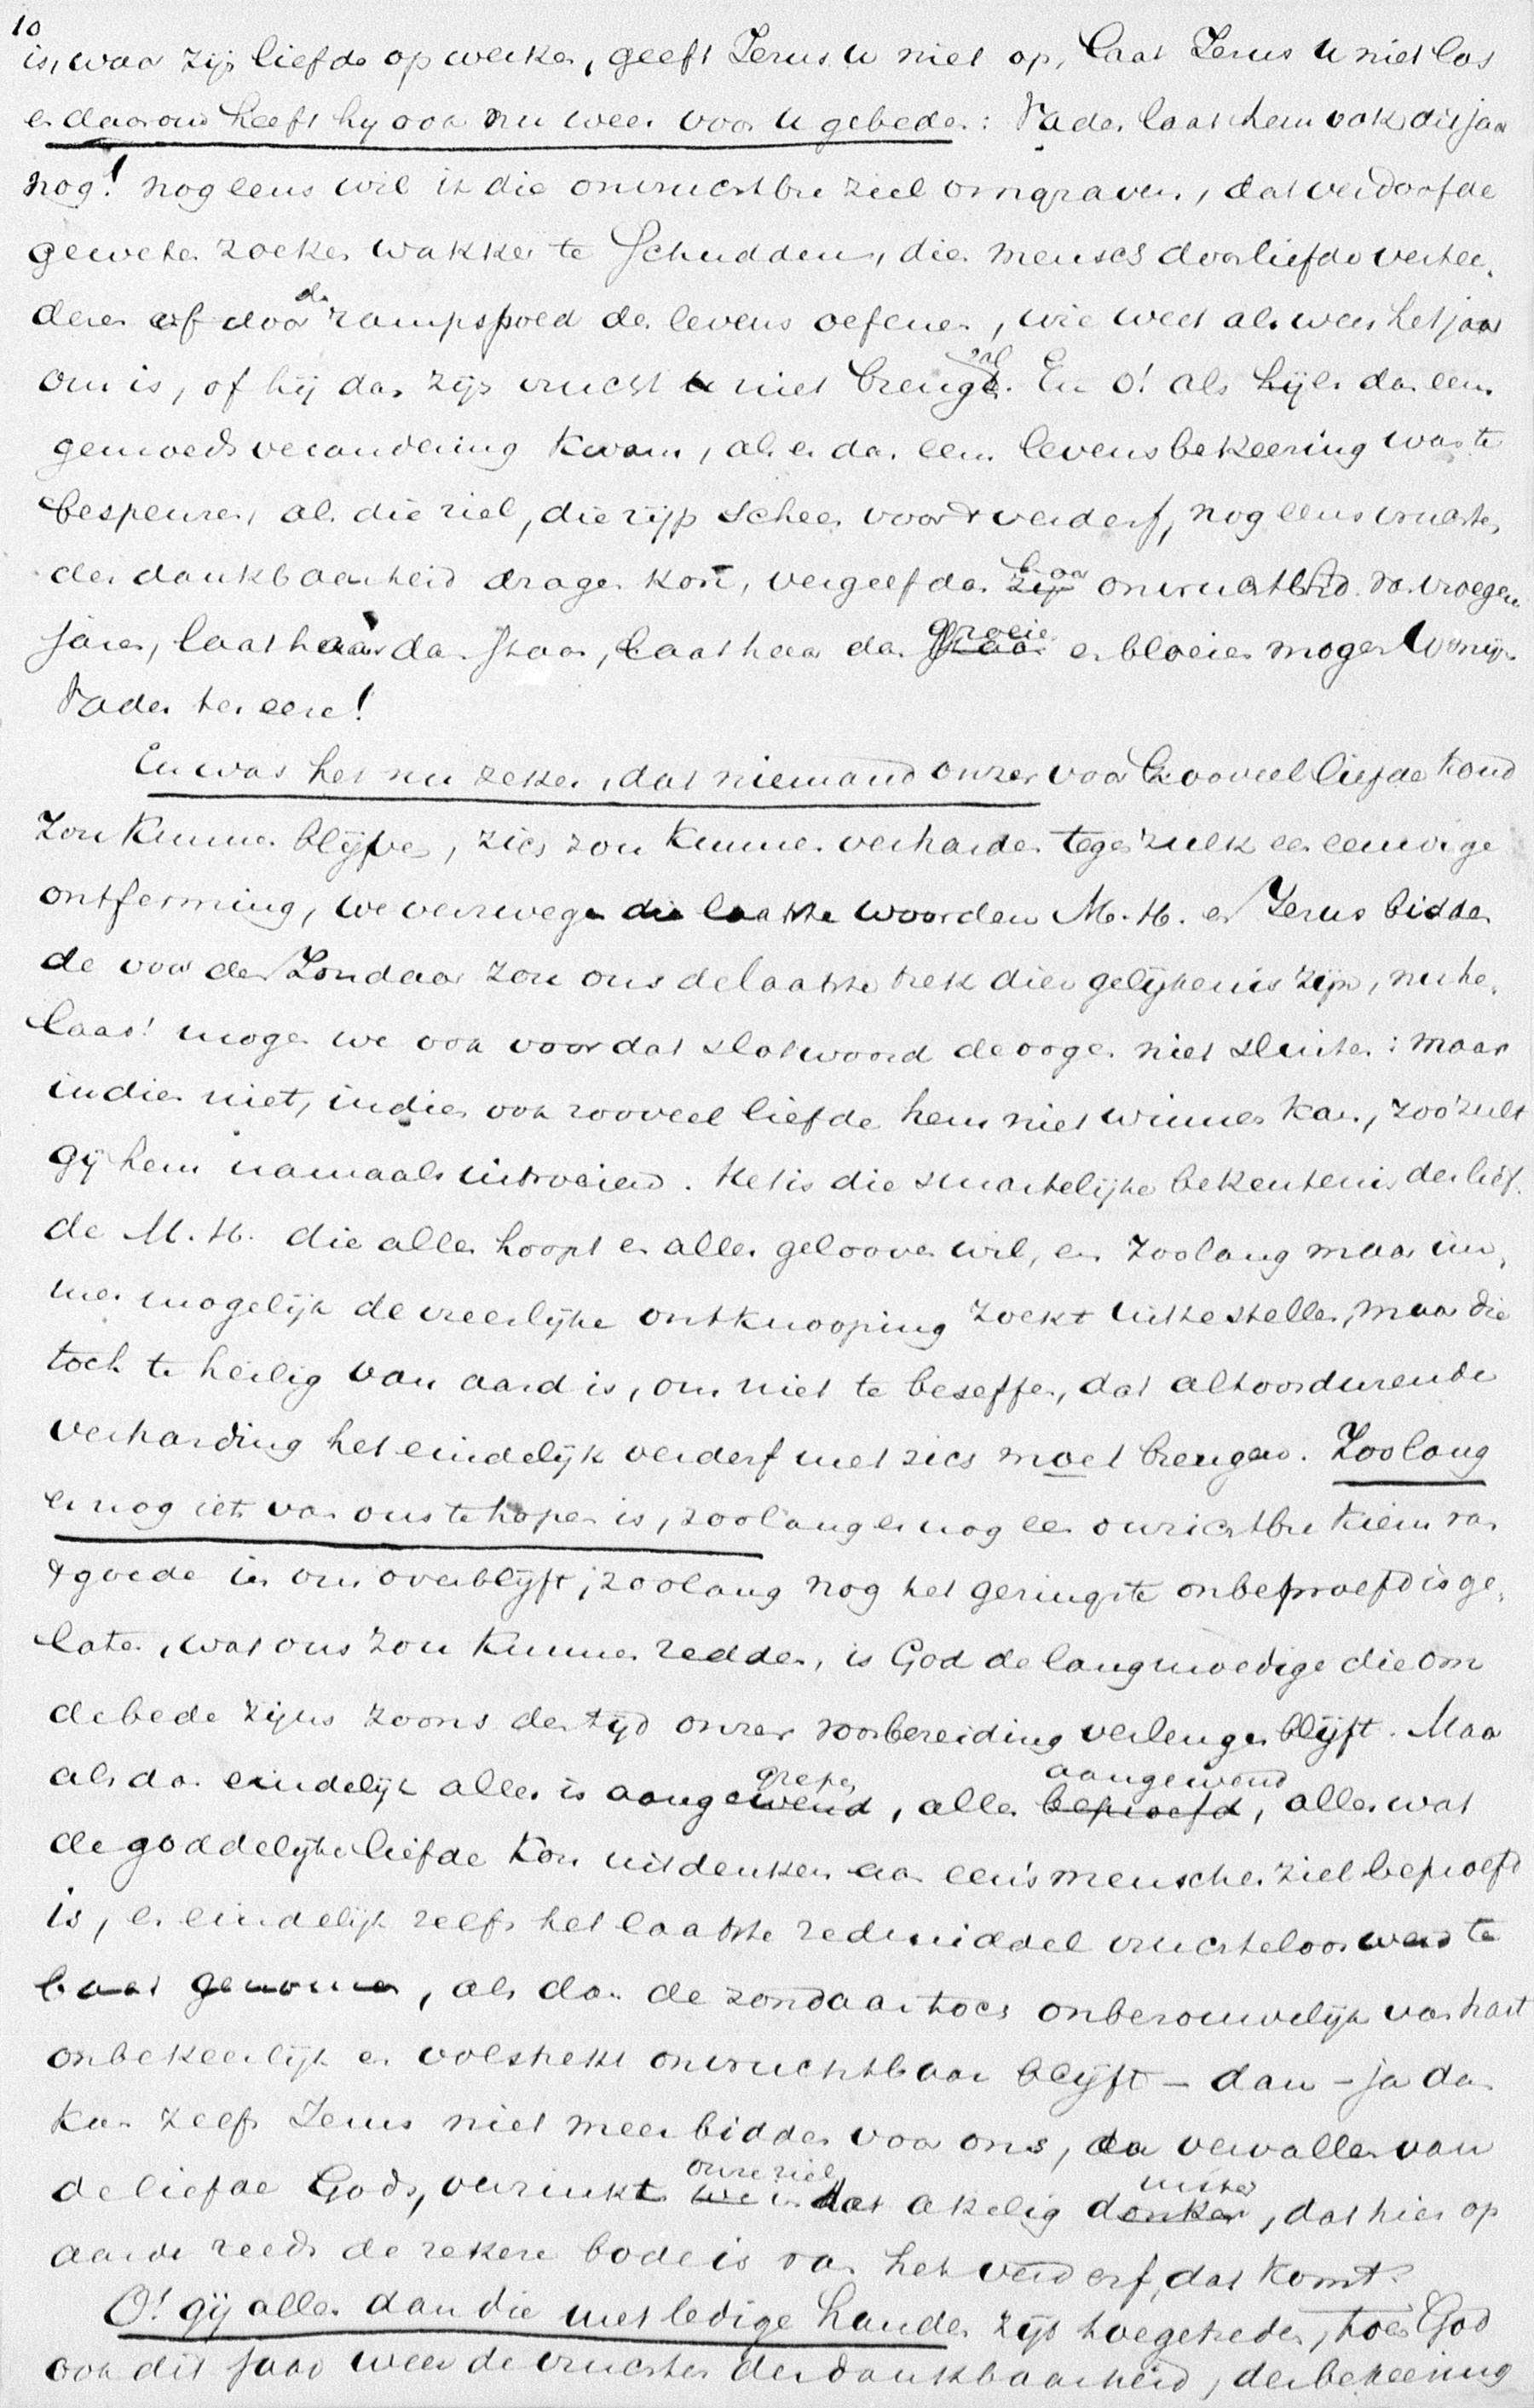 10
is, waar zijn liefde op werken, geeft Jezus u niet op, laat Jezus u niet los
en daarom heeft hy ook nu weer voor u gebeden: Vader laat hem ook dit jaar
nog! nog eens wil ik die onvruchtbre ziel omgraven, dat verdoofde
geweten zoeken wakker te schudden, dien mensch door liefde vertee-
deren of door de rampspoed des levens oefenen, wie weet als weer het jaar
om is, of hij dan zijn vrucht niet brengen zal. En o! als er dan een
gemoedsverandering kwam, als er dan een levensbekeering was te
bespeuren, als die ziel, die rijp scheen voor 't verderf, nog eens vruchten
der dankbaarheid dragen kon, vergeef dan zijn haar onvruchtbhd. van vroeger
jaren, laat haar dan staan, laat haar dan staan groeien en bloeien mogen U mijn
Vader ter eere!
En was het nu zeker, dat niemand onzer voor zooveel liefde koud
zou kunnen blijven, zich zou kunnen verharden tegen zulk een eeuwige
ontferming, we verzwegen die laatste woorden M. H. en Jezus bidden
de voor den Zondaar zou ons de laatste trek dier gelijkenis zijn, nu he-
laas! mogen we ook voor dat slotwoord de oogen niet sluiten: maar
indien niet, indien ook zooveel liefde hem niet winnen kan, zoo zult
gij hem namaals uitroeien. Het is die smartelijke bekentenis der lief-
de M. H. die alles hoopt en alles gelooven wil, en zoolang maar im-
mer mogelijk de vreeslijke ontknooping zoekt uit te stellen, maar die
toch te heilig van aard is, om niet te beseffen, dat altoosdurende
verharding het eindelijk verderf met zich moet brengen. Zoolang
er nog iets van ons te hopen is, zoolang er nog een onzichtbre kiem van
't goede in ons overblijft, zoolang nog het geringste onbeproefd is ge-
laten, wat ons zou kunnen redden, is God de langmoedige die om
de bede zijns zoons den tijd onzer voorbereiding verlengen blijft. Maar
als dan eindelijk alles is aangewend grepen, alles beproefd aangewend, alles wat
de goddelijke liefde kon uitdenken aan een's menschen ziel beproefd
is, en eindelijk zelfs het laatste redmiddel vruchteloos werd te
baat genomen, als dan de zondaar toch onberouwelijk van hart
onbekeerlijk en volstrekt onvruchtbaar blijft – dan – ja dan
kan zelfs Jezus niet meer bidden voor ons, dan vervallen van
de liefde Gods, verzinkt we onze ziel in dat akelig donker duister, dat hier op
aarde reeds de zekere bode is van het verderf, dat komt.
O! gij allen dan die met ledige handen zijt toegetreden, toen God
ook dit jaar weer de vruchten der dankbaarheid, der bekeering